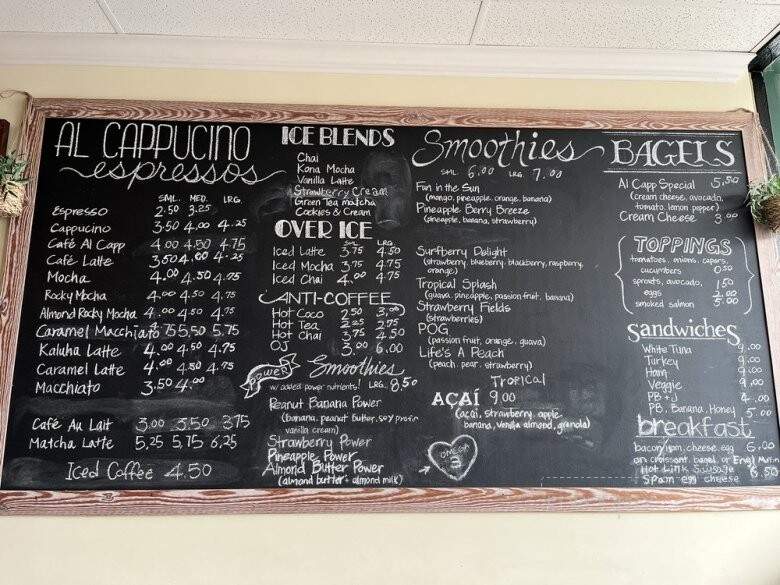 AL CAPPUCINO
espressos
SML. MED. LRG.
Espresso 2.50 3.25
Cappucino 3.50 4.00 4.25
Café Al Capp 4.00 4.50 4.75
Café Latte 3.50 4.00 4.25
Mocha 4.00 4.50 4.75
Rocky Mocha 4.00 4.50 4.75
Almond Rocky Mocha 4.00 4.50 4.75
Caramel Macchiato 5.50 5.75
Kaluha Latte 4.00 4.50 4.75
Caramel Latte 4.00 4.50 4.75
Macchiato 3.50 4.00
Café Au Lait 3.00 3.50 3.75
Matcha Latte 5.25 5.75 6.25
Iced Coffee 4.50
ICE BLENDS
Chai
Kona Mocha
Vanilla Latte
Strawberry Cream
Green Tea matcha
Cookies & Cream
OVER ICE
SML LRG
Iced Latte 3.75 4.50
Iced Mocha 3.75 4.75
Iced Chai 4.00 4.75
ANTI-COFFEE
Hot Coco 2.50 3.00
Hot Tea 2.25 2.75
Hot Chai 3.75 4.50
OJ 3.00 6.00
POWER Smoothies
w/ added power nutrients! LRG. 8.50
Peanut Banana Power
(banana, peanut butter, soy protein
vanilla cream)
Strawberry Power
Pineapple Power
Almond Butter Power
(almond butter + almond milk)
Smoothies
SML 6.00 LRG. 7.00
Fun in the Sun
(mango, pineapple, orange, banana)
Pineapple Berry Breeze
(pineapple, banana, strawberry)
Surfberry Delight
(strawberry, blueberry, blackberry, raspberry,
orange)
Tropical Splash
(guava, pineapple, passion fruit, banana)
Strawberry Fields
(strawberries)
POG
(passion fruit, orange, guava)
Life's A Peach
(peach, pear, strawberry)
Tropical
AÇAÍ 9.00
(açai, strawberry, apple
banana, vanilla almond, granola)
OMEGA
3
BAGELS
Al Capp Special 5.50
(cream cheese, avocado,
tomato, lemon pepper)
Cream Cheese 3.00
TOPPINGS
tomatoes, onions, capers,
cucumbers 0.50
sprouts, avocado, 1.50
eggs 2.00
smoked salmon 5.00
Sandwiches
White Tuna 9.00
Turkey 9.00
Ham 9.00
Veggie 9.00
PB + J 4.00
PB, Banana, Honey 5.00
breakfast
bacon, ham, cheese, egg 6.00
on croissant, bagel, or Engl Muffin
Hot Link Sausage 6.50
Spam egg cheese